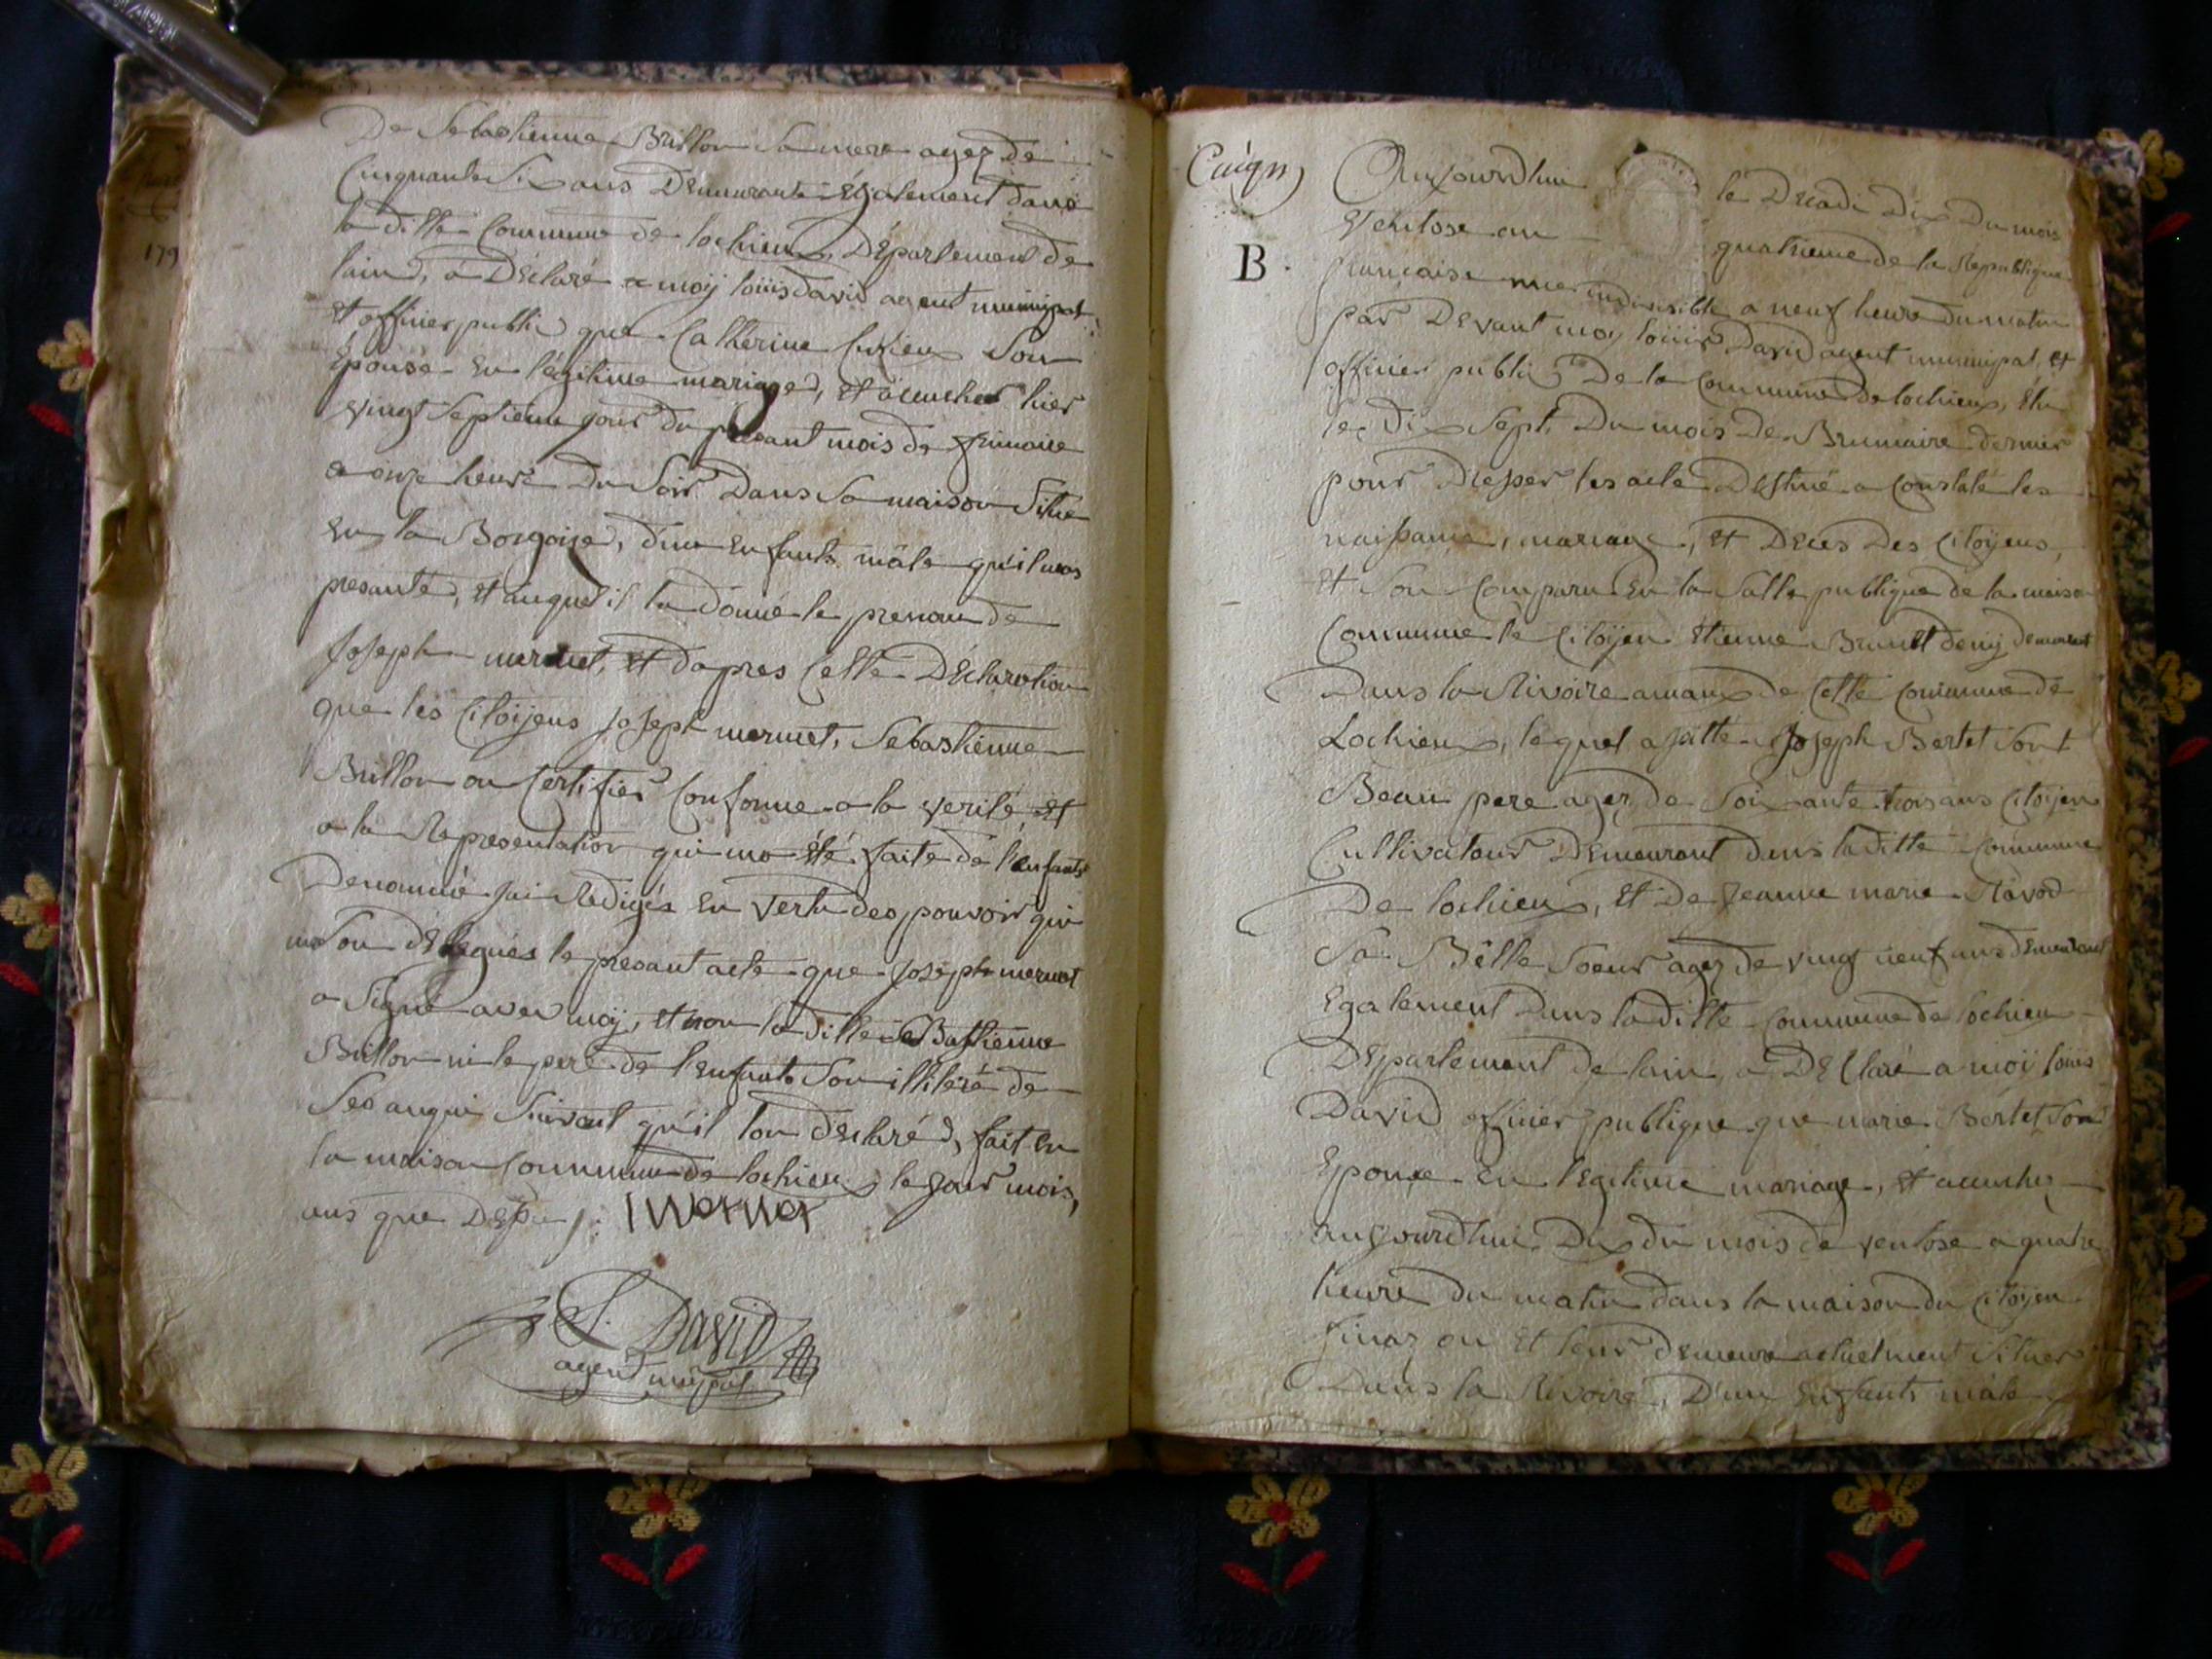 De Sebastienne Brillon sa mere agez de
Cinquante Six ans Demeurante Également dans
la ditte Commune de lochieux, Département de
lain, a Déclaré a moÿ loüis david agent municipal
et officier public que Catherine Cuzieu Son
Épouse en légitime mariage, et acucher hier
vingt Septieme jour du presant mois de frimaire
a onze heure Du Soir Dans Sa maison Situe
En la Borgoise, d'un Enfants mâle qu'il mas
presanté, et auquel il la donné le prenom de
Joseph mermet, et dapres Cette Déclaration
que les Citoÿens Joseph mermet, Sebastienne
Brillon on Certifier Conforme a la verité, et
a la Representation qui ma Été faite de l'enfants
Denommé jai Redigés en vertu des pouvoir qui
me Son délégués le presant acte que Joseph mermet
a Signé avec moÿ, et non la ditte SeBastienne
Brillon ni le pere de l'enfants Son illiteré de
Ses anqui Suivant qu'il lon déclaré, fait en
la maison Commune de lochieux le jour mois,
ans que Dessus
S. David
agent mupal
179
B.
Aujourdhui le Decadi Dix Du mois
Ventose an quatrieme de la Republique
francaise une indivisible a neuf heure du matin
par Devant moÿ loüis David agent municipal et
officier public De la Commune de lochieux, élu
le Dix Sept Du mois De Brumaire dernier
pour Dresser les acte Destiné a Constaté les
naissance, mariage, et Déces Des Citoÿens,
et Son Comparu En la Salle publique de la maison
Commune le Citoÿen Etienne Brunet demeurant
Dans la Rivoire amaux de Cette Commune de
Lochieux, lequel a satte Joseph Bertet Sont
Beau pere agez de Soixante trois ans Citoÿen
Cultivateur Demeurant dans la ditte Commune
De lochieux, et De Jeanne marie Ravod
Sa Bélle Soeur agez de vingt neuf ans demeurant
Egalement Dans la ditte Commune de lochieu
Département de lain, a DEClaré a moÿ loüis
David officier publique que marie Bertet Son
Epouse en légitime mariage, et acucher
aujourdhui Dix du mois de ventose a quatre
heure du matin dans la maison du Citoÿen
finaz ou et leur demeure actuelment Situer
Dans la Rivoire, D'un Enfants mâle